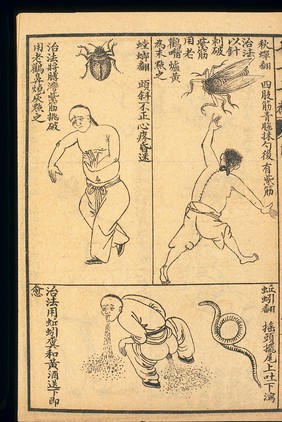 秋蟬翻
四肢筋青腦抹勺後有紫筋
治法
以針
刺破
紫筋
用老
鸛嘴爐黃
為末點之
螳螂翻
頭斜不正心疼昏迷
治法將膊彎紫筋挑破
用老鸛鼻燒灰點之
蚯蚓翻
搖頭擺尾上吐下瀉
治法用蚯蚓糞和黃酒送下即
愈